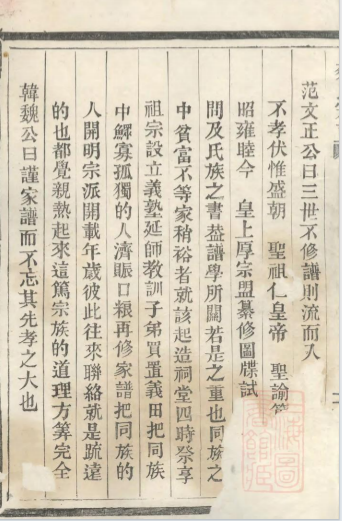 范文正公曰三世不修譜則流而入
不孝伏惟盛朝 聖祖仁皇帝 聖諭
昭雍睦今 皇上厚宗盟纂修圖牒試
問及氏族之書葢譜學所關若是之重也同族之
中貧富不等家稍裕者就該起造祠堂四時祭享
祖宗設立義塾延師教訓子弟買置義田把同族
中鰥寡孤獨的人濟賑口粮再修家譜把同族的
人開明宗派開載年歲彼此往來聯絡就是疏遠
的也都覺親熱起來這篤宗族的道理方筭完全
韓魏公曰謹家譜而不忘其先孝之大也